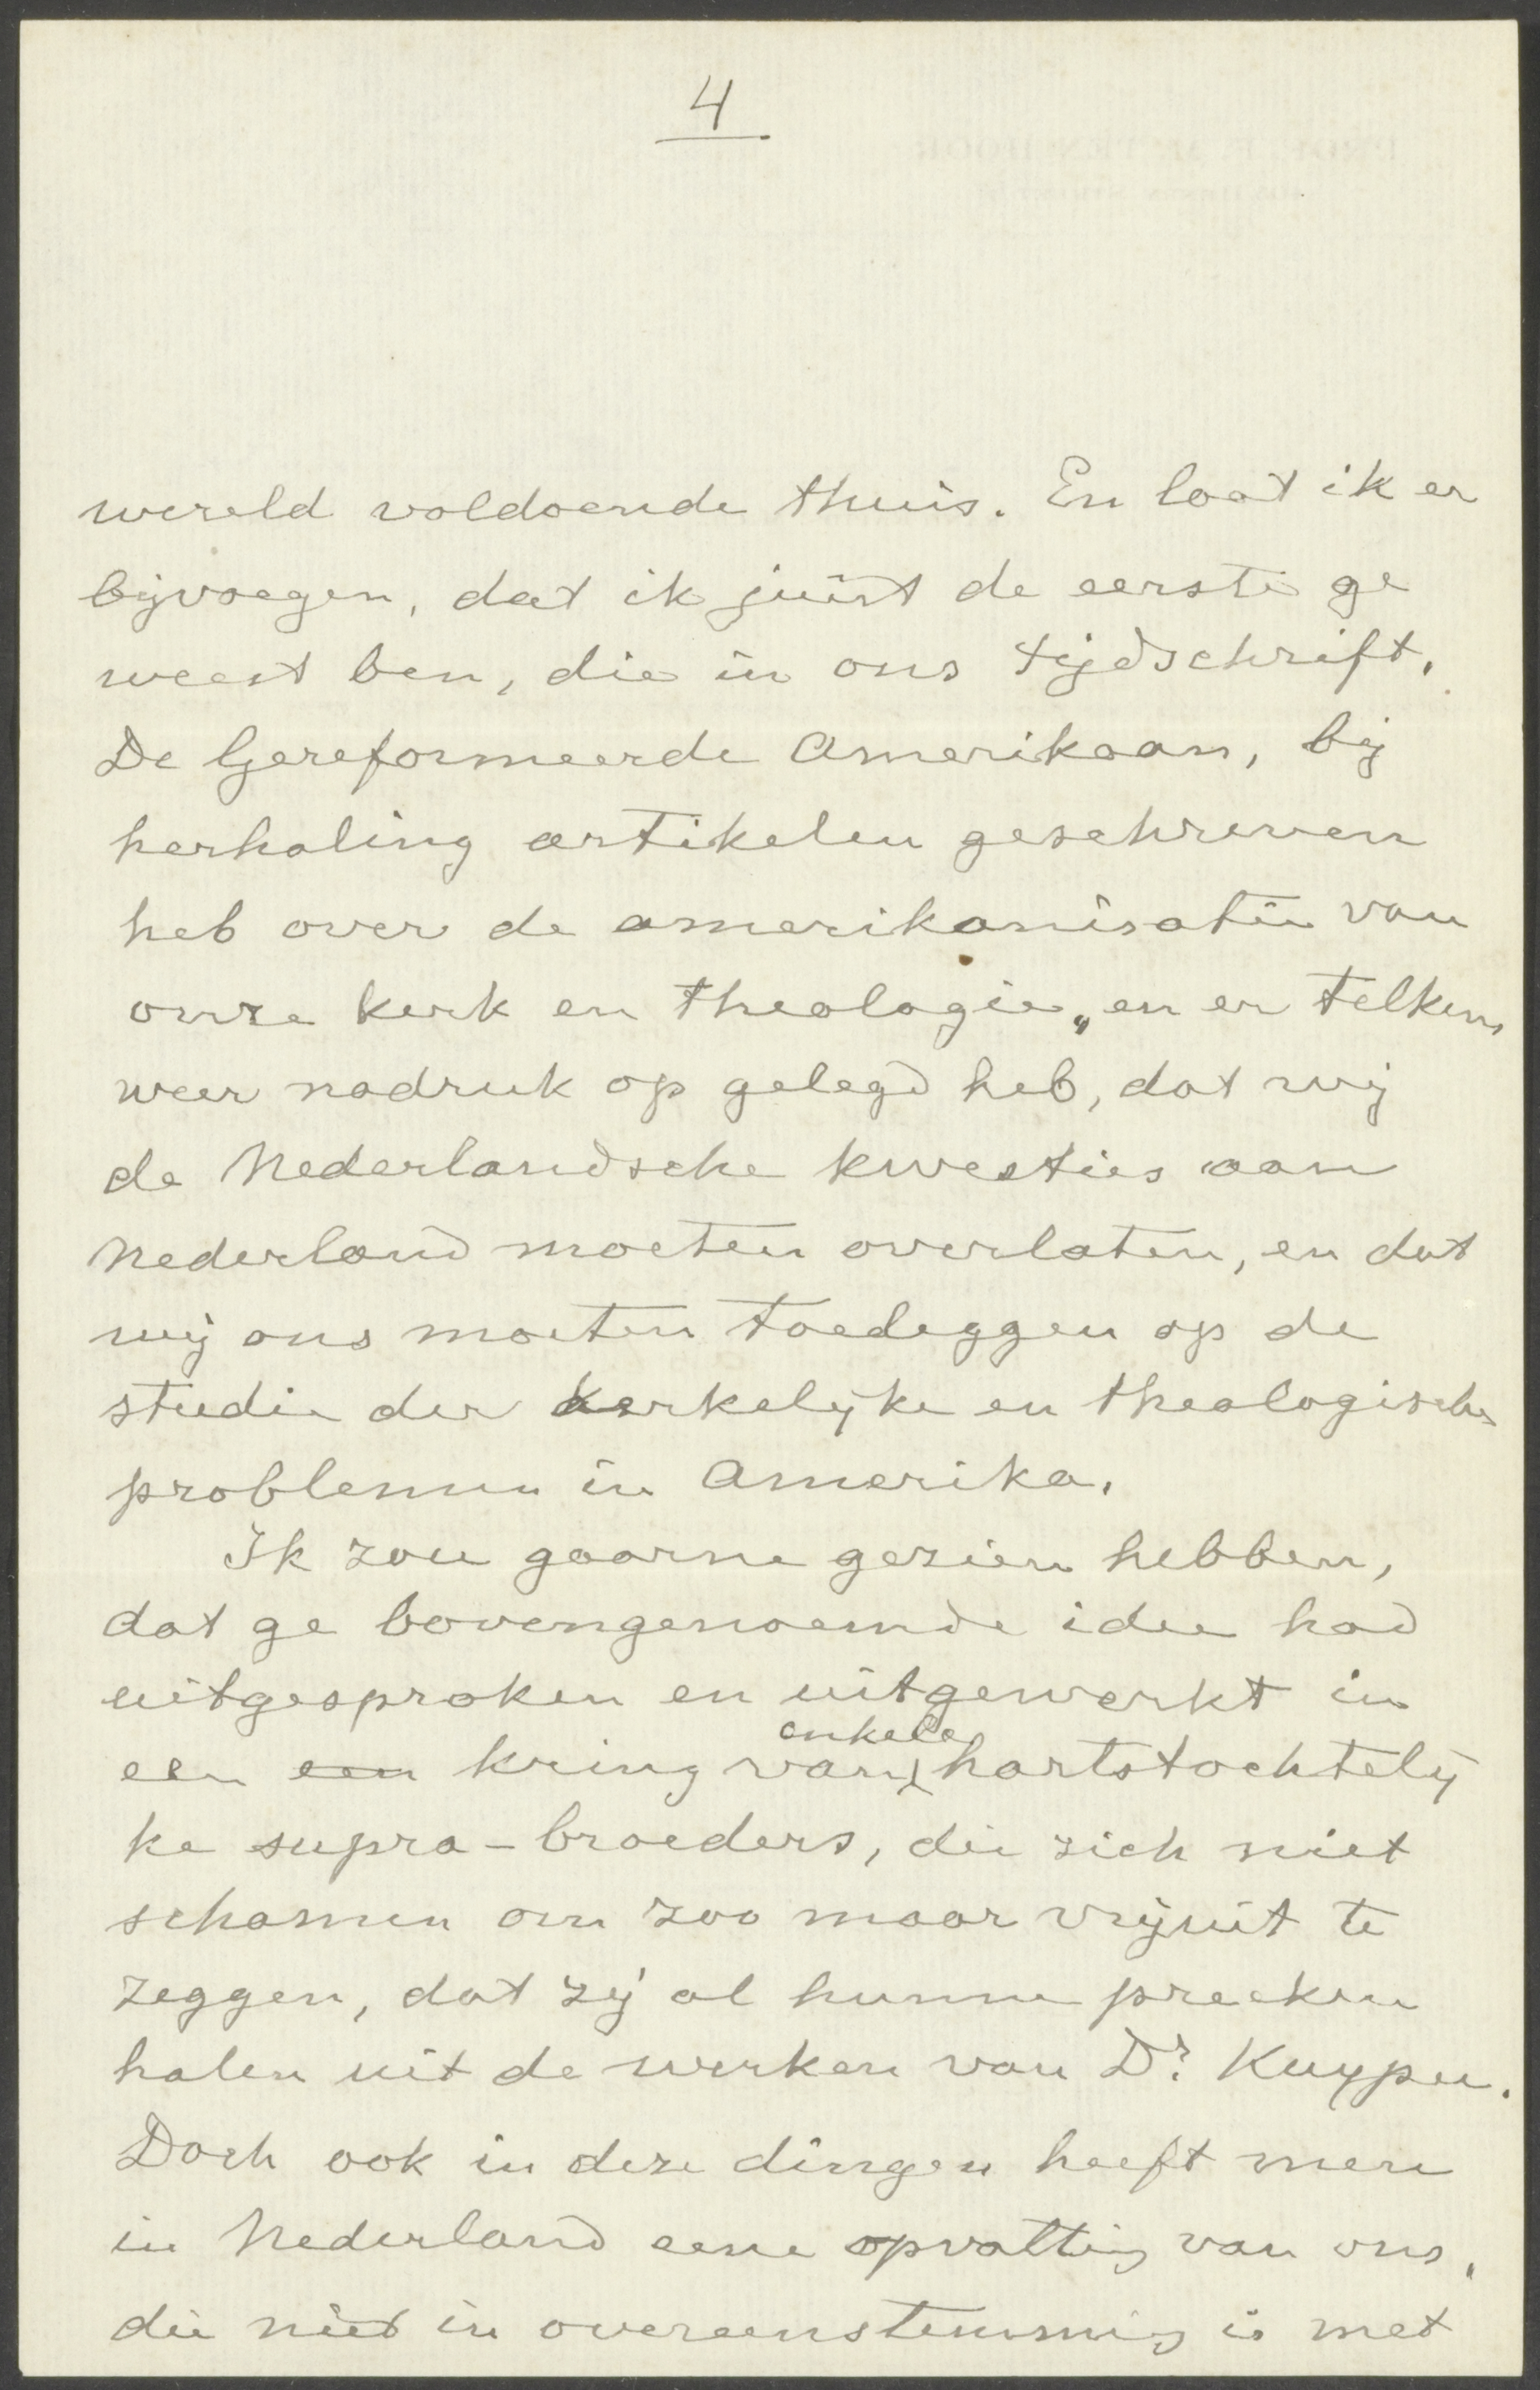 4
wereld voldoende thuis. En laat ik er
bijvoegen, dat ik juist de eerste ge
weest ben, die in ons tijdschrift,
De Gereformeerde Amerikaan, bij
herhaling artikelen geschreven
heb over de amerikanisatie van
onze kerk en theologie, en er telkens
weer nadruk op gelegd heb, dat wij
de Nederlandsche kwesties aan
Nederland moeten overlaten, en dat
wij ons moeten toeleggen op de
studie der kerkelijke en theologische
problemen in Amerika.
Ik zou gaarne gezien hebben,
dat ge bovengenoemde idee had
uitgesproken en uitgewerkt in
een een kring van enkele hartstochtelij
ke supra-broeders, die zich niet
schamen om zoo maar vrijuit te
zeggen, dat zij al hunne preeken
halen uit de werken van Dr. Kuyper.
Doch ook in deze dingen heeft men
in Nederland eene opvatting van ons,
die niet in overeenstemming is met